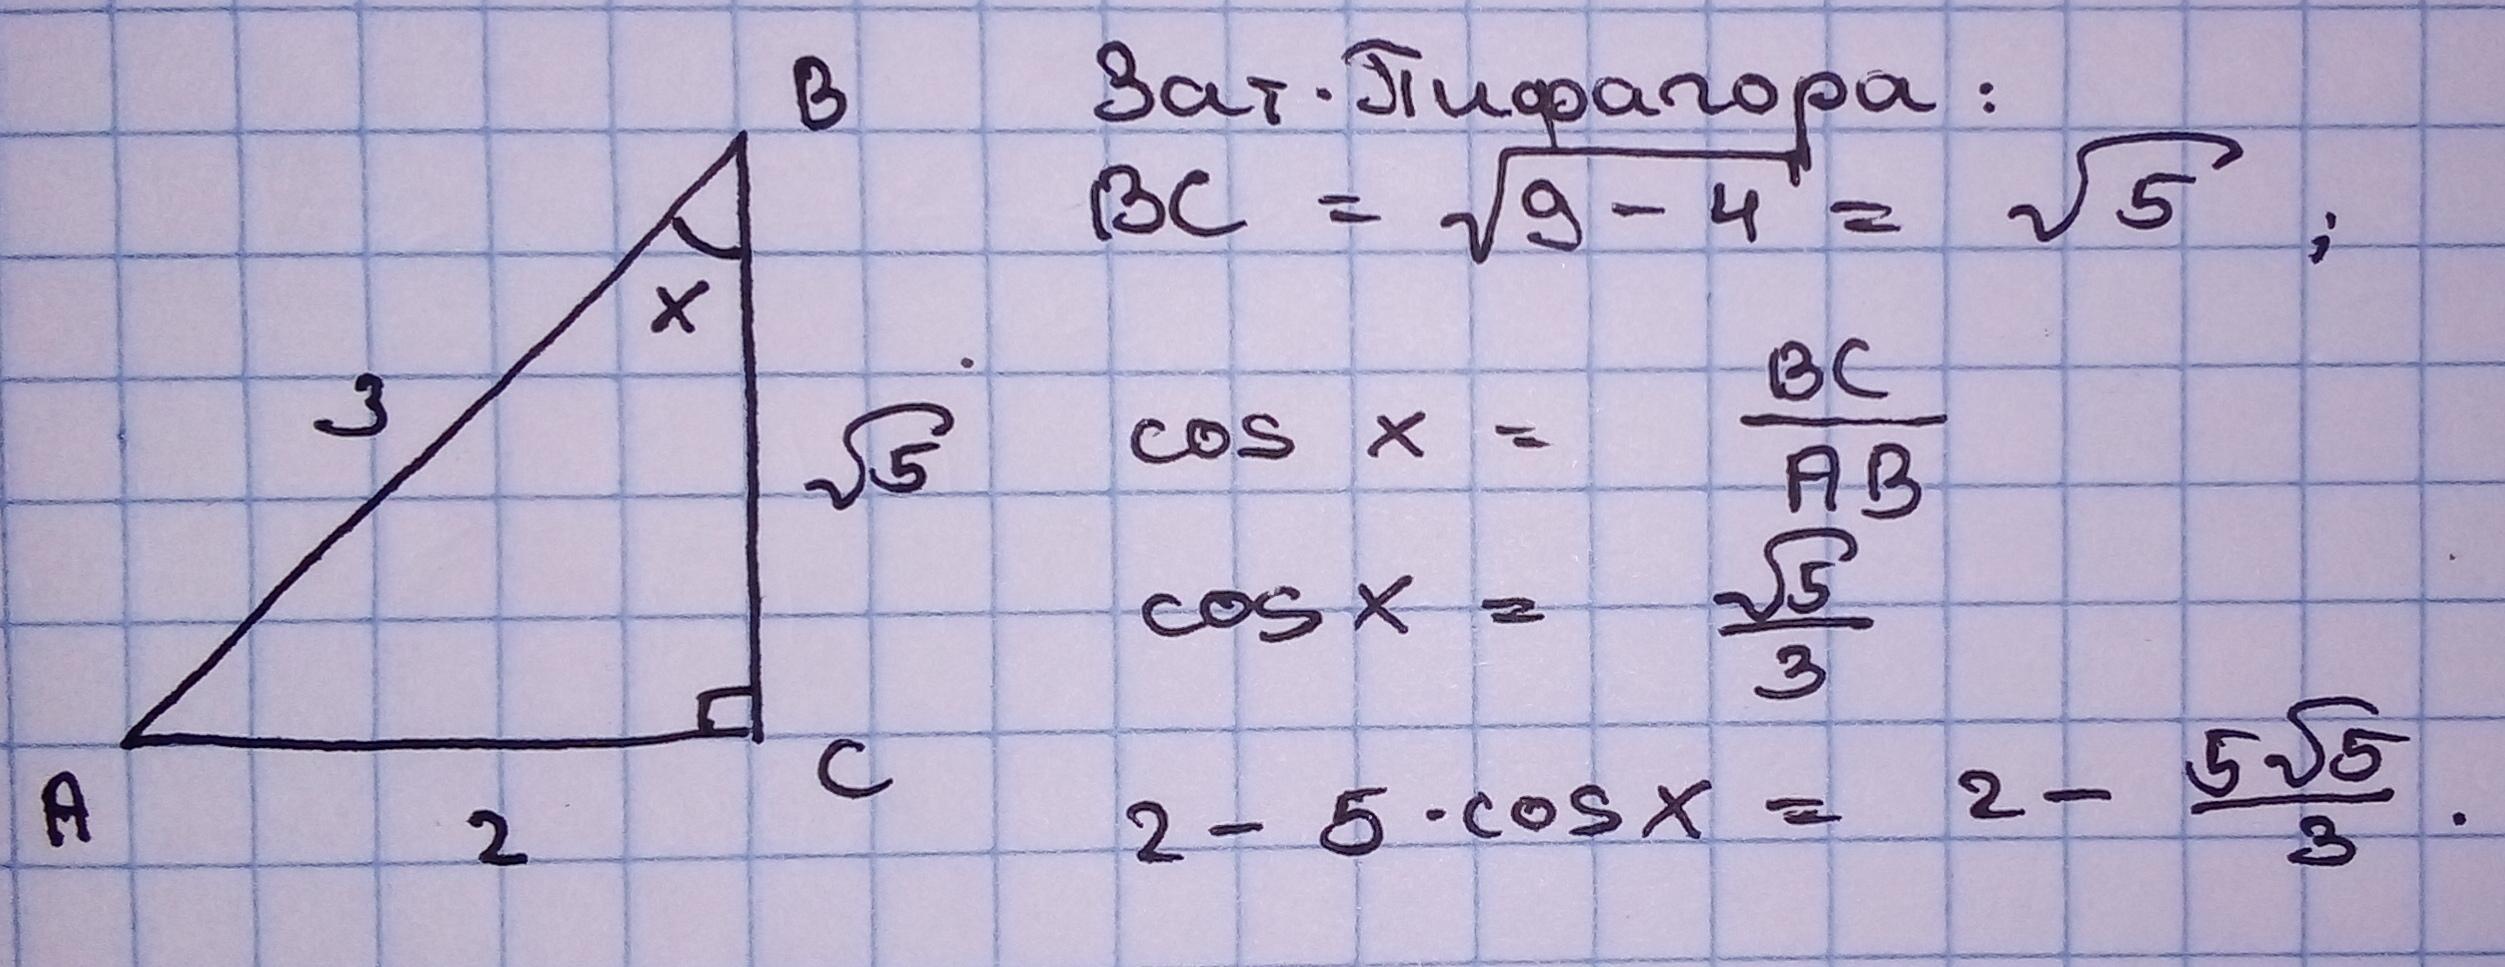 B
x
3
√5
A
2
C
За т. Пифагора:
BC = √9 - 4 = √5 ;
cos x = BC/AB
cos x = √5/3
2 - 5 · cos x = 2 - 5√5/3 .